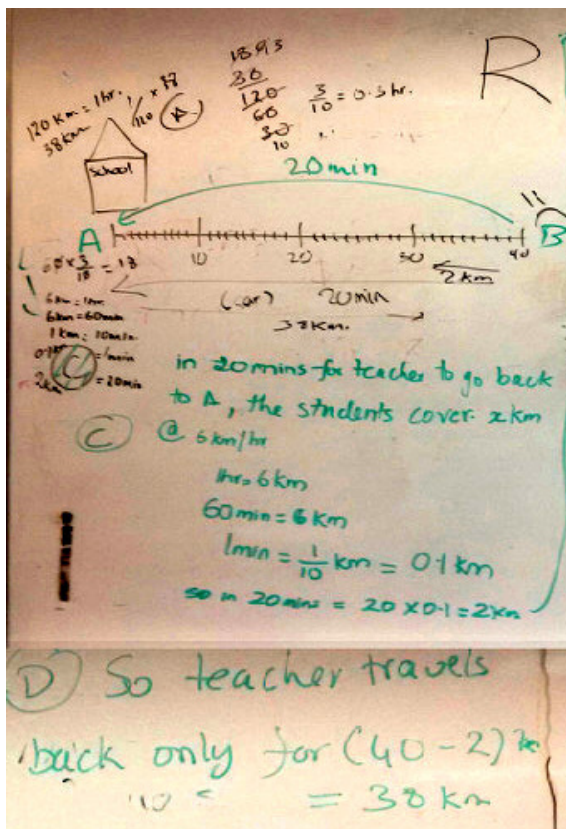 120 km = 1hr.
38km
1/120 × 38
A
1893
30
120
60
30
10
3/10 = 0.3 hr.
R
School
20min
A
B
10
20
30
40
2km
× 3/10 = 18
(car) 20min
38km.
6km = 1hr
6km = 60min
1km = 10min
= 1min
2km = 20min
C
in 20mins for teacher to go back
to A, the students cover x km
C @ 6km/hr
1hr = 6km
60min = 6km
1min = 1/10 km = 0.1km
so in 20mins = 20 × 0.1 = 2km
D So teacher travels
back only for (40-2)
= 38km